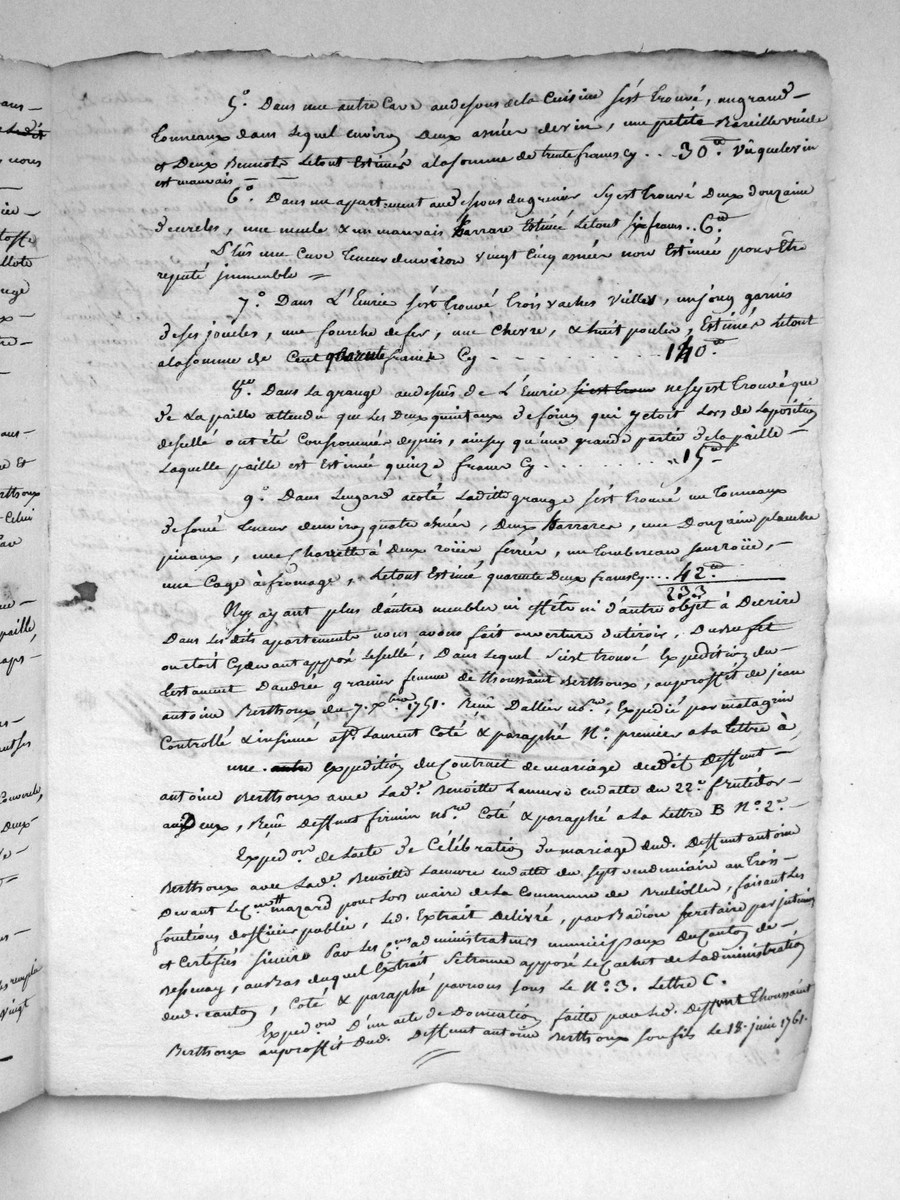 5.° Dans une autre Cave au desous de la Cuisine s'est trouvé, un grand
Tonneaux dans lequel environ deux asnées de vin, une petite Bareille vuide
et Deux Bennots Le tout Estimés a la somme de trente francs Cy .. 30.tt vû que le vin
est mauvais
6.° Dans un apartement au desous du grenier s'y est trouvé deux douzaine
une meule & un mauvais Barrare Estimé Le tout six francs .. 6.tt
Plûs une Cuve Teneur d'environ vingt Cinq asnées non Estimée pour Être
reputé immeuble =
7.° Dans L'Eurie s'est trouvé trois vaches vielles, un joug garnis
de ses joucles, une fourche de fer, une Chevre, & huit poules, Estimés Le tout
a la somme de Cent quarante francs Cy . . . . . . . 140.tt
8.° Dans la grange au desûs de L'Eurie s'est trouv ne s'y est trouvé que
de La paille attendu que Les Deux quintaux de foing qui y etoit Lors de Laposition
de sellé ont été Consommés depuis, ainsy qu'une grande partie de la paille
Laquelle paille est Estimée quinze francs Cy . . . . . . . 15.tt
9.° Dans Lengard acoté Laditte grange s'est trouvé un Tonneaux
Teneur d'environ quatre asnées, Deux Barrares, une Douzaine planche
une Charrette à Deux roües ferrés, un Tombereau sans roüe,
une Cage à fromage, Le tout Estimé quarante Deux francs Cy .... 42.tt
233
N'y ayant plus d'autres meubles ni effêts ni d'autre objet à Decrire
Dans Les dits apartements nous avons fait ouverture du tiroir, Du buffet
ou etoit Cydevant apposé Le sellé, Dans Lequel s'est trouvé Expedition du
Testament D'andrée granier femme de Thoussaint Berthoux, au proffit de jean
antoine Berthoux du 7. Xbre 1751. Reçu Dallier no.re, Expedié par matagrin
Controllé & insinué a St Laurent Coté & paraphé N.° premier a la Lettre à
une autre Expedition du Contract de mariage dudit Deffunt
antoine Berthoux avec Lad.e Benoitte Lamure en datte du 22.e frutidor
an Deux, Reçu Deffunt firmin no.re Coté & paraphé a la Lettre B N.° 2.°
Exped.on de L'acte de Célébration du mariage dud. Deffunt antoine
Berthoux avec Lad.e Benoitte Lamure en datte du sept vendemiaire an Trois
Devant Le C.en mazard pour Lors maire de la Commune de Brulliolles, faisant Les
fonctions d'officier public, Led. Extrait Delivré, par Badion secretaire per interim
et Certifiés sincere Par Les C.ens administrateurs municipaux Du Canton de
Bessenay, au bas duquel Extrait se trouve apposé Le Cachet de L'administration
dud. canton, Coté & paraphé par nous sous Le N.° 3. Lettre C.
Exped.on D'un acte de Donnation faitte par Led. Deffunt Thoussaint
Berthoux au proffit Dud. Deffunt antoine Berthoux son fils Le 18. juin 1761.